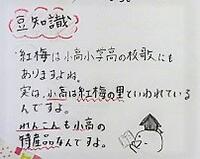 豆知識
"紅梅は小高小学高の校歌にも
ありますよね。
実は、小高は紅梅の里といわれている
んですよ。
れんこんも小高の
特産品なんですよ。